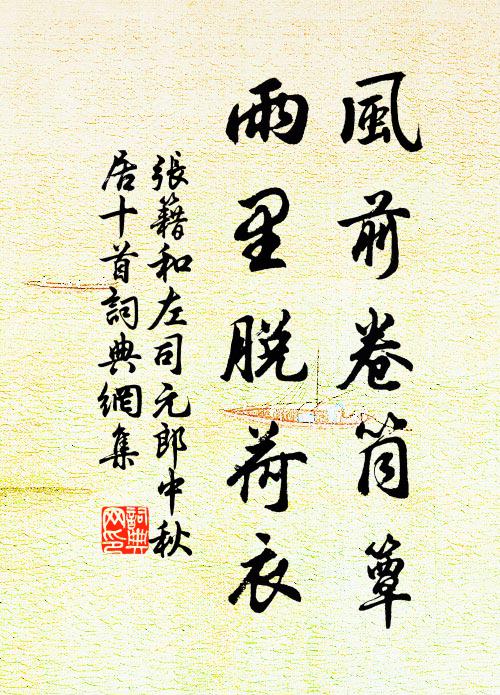 風前卷筒簟
雨里脱荷衣
張籍和左司元郎中秋
居十首詞典網集
詞典
网印